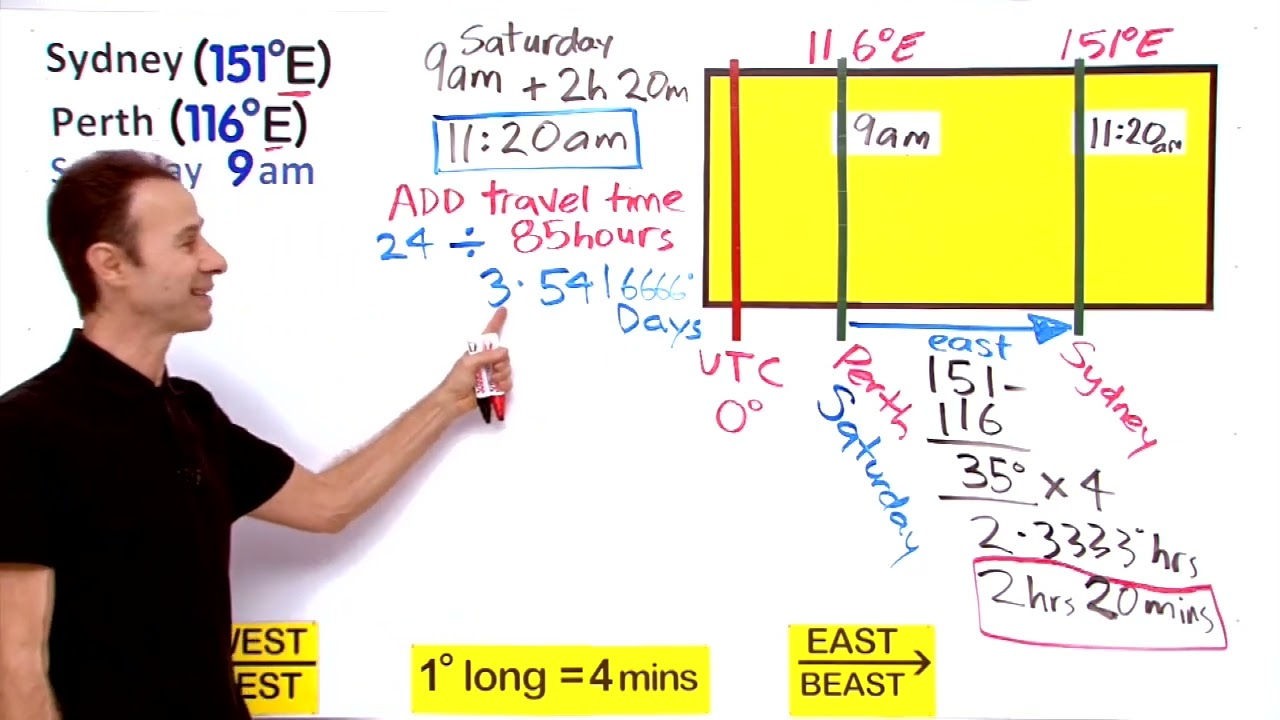 Sydney (151°E)
Perth (116°E)
9am
Saturday
9am + 2h 20m
11:20am
ADD travel time
24 ÷ 85hours
3.5416666°
Days
116°E
151°E
9am
11:20am
UTC
0°
Perth
Saturday
east
Sydney
151-
116
35° x 4
2.3333° hrs
2hrs 20mins
EST
EST
1° long = 4 mins
EAST
BEAST